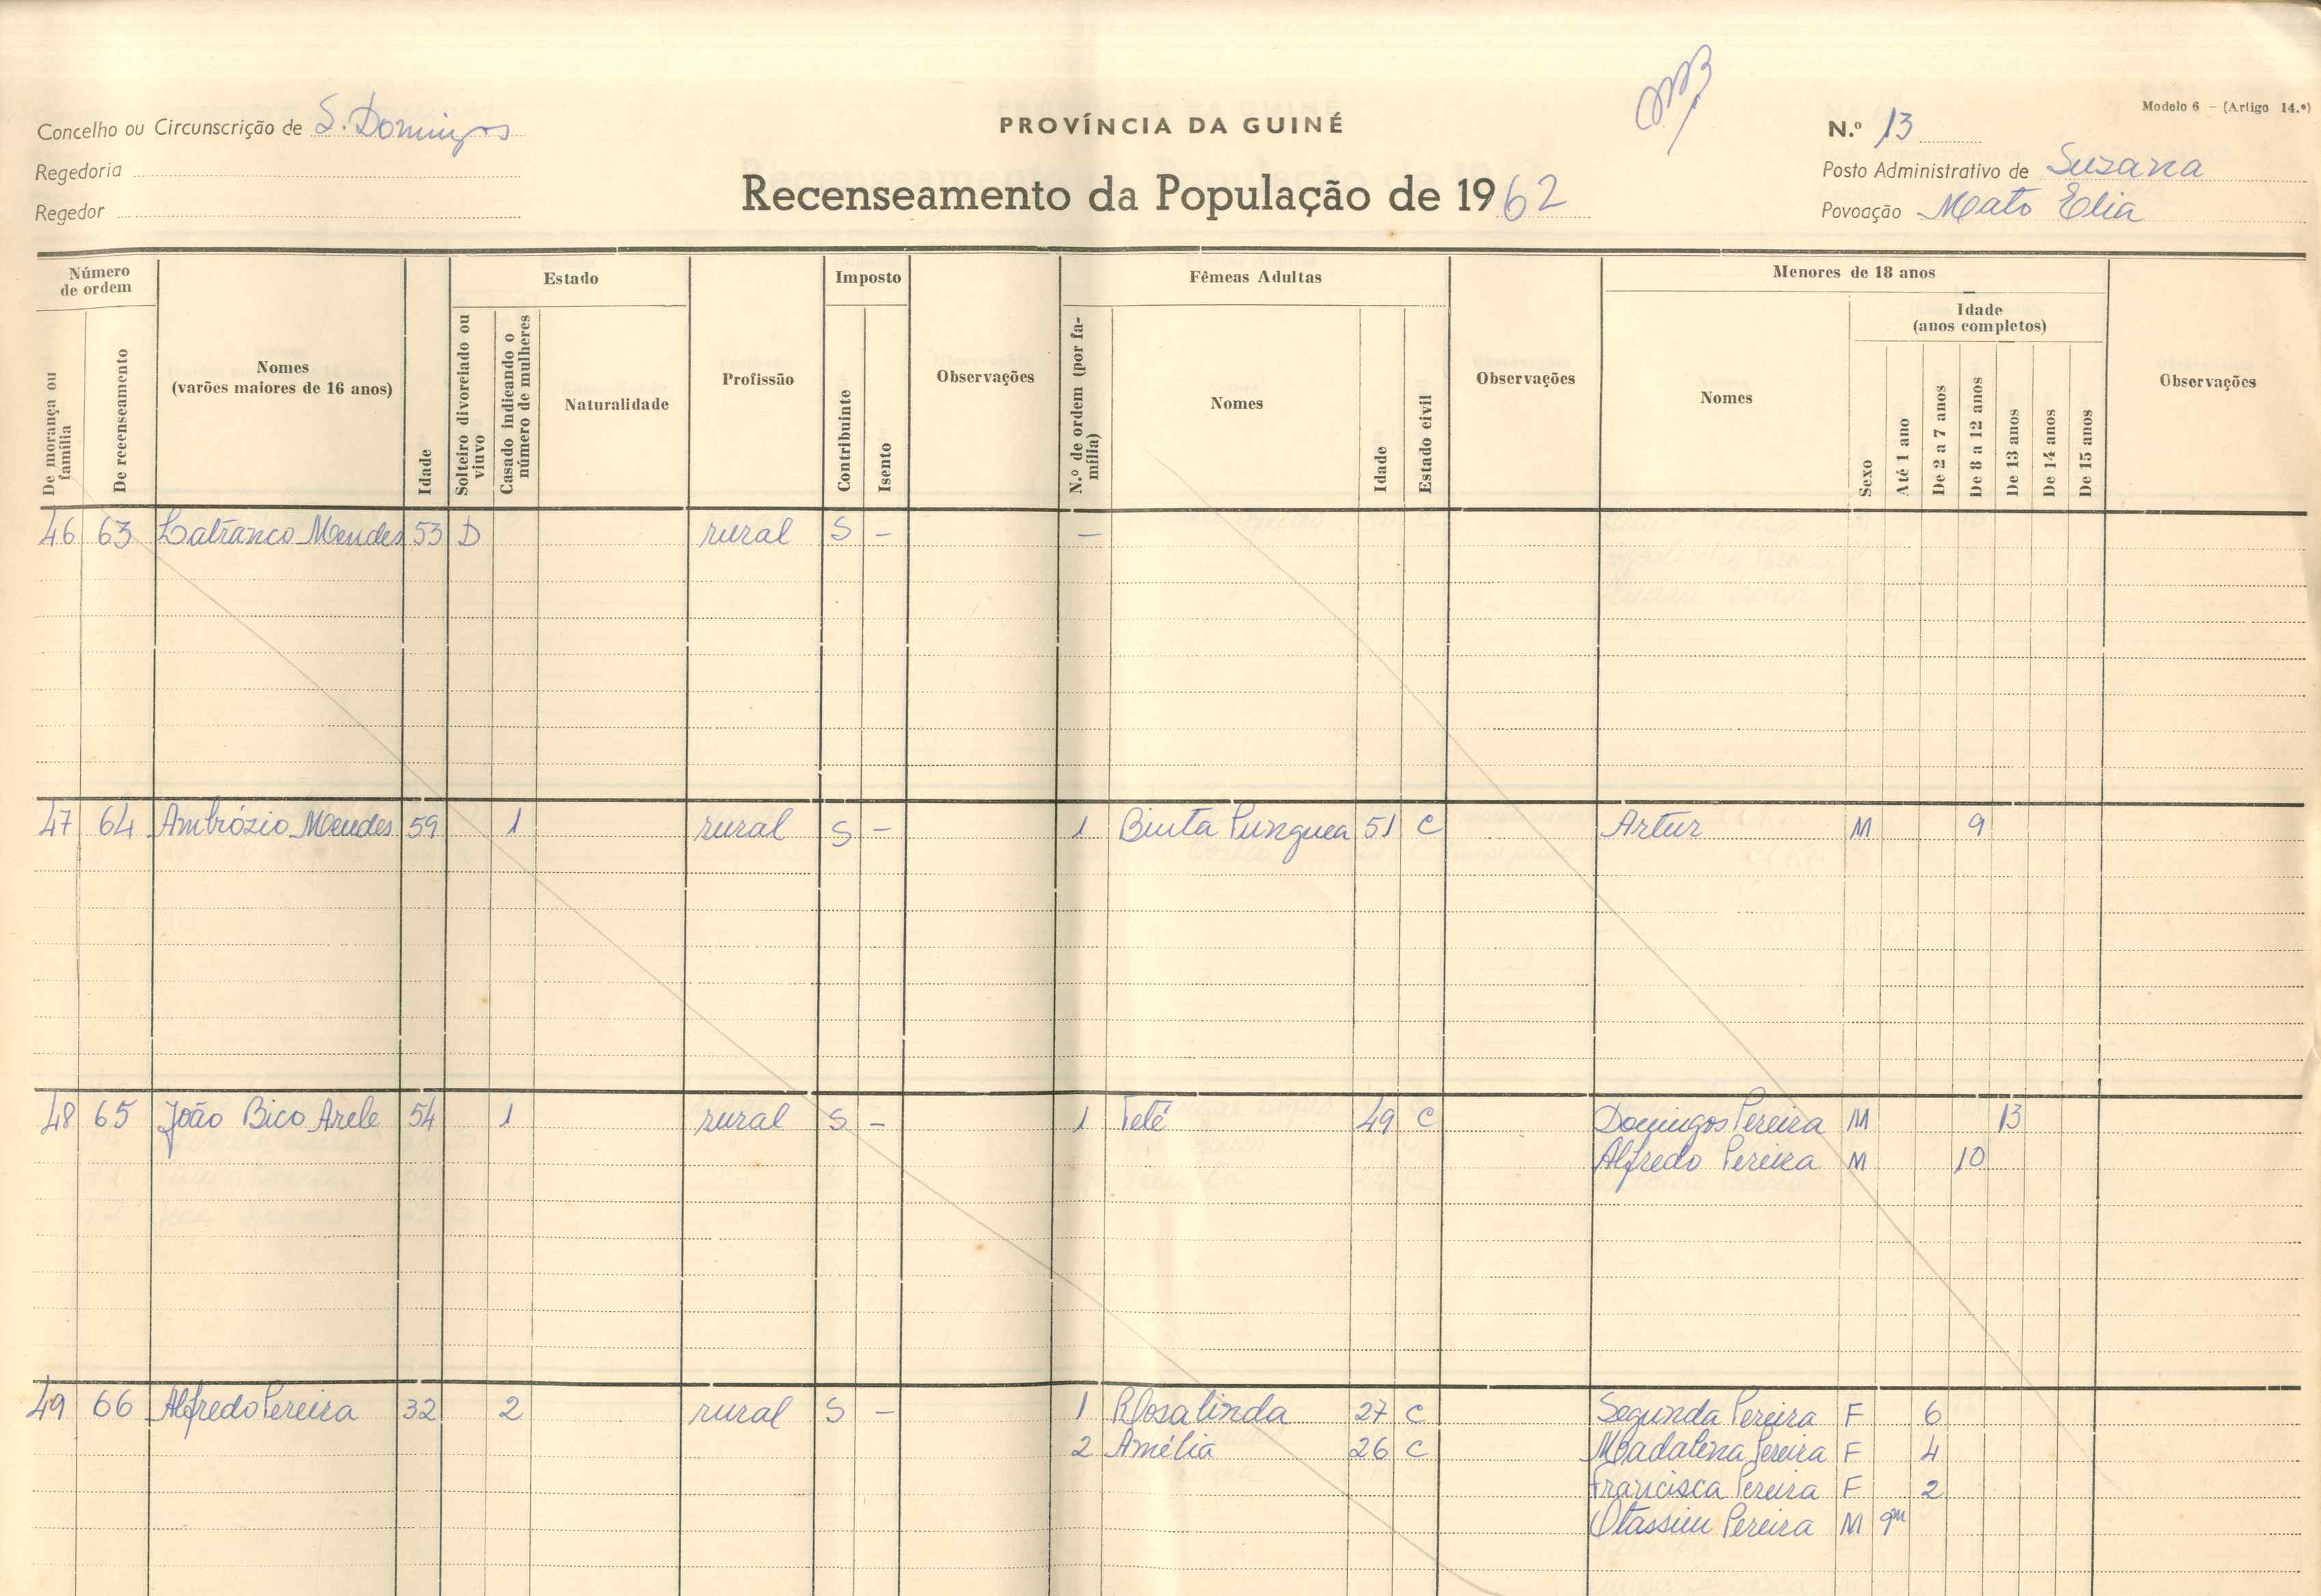 Modelo 6 - (Artigo 14.º)
Concelho ou Circunscrição de S. Domingos
PROVÍNCIA DA GUINÉ
N.º 13
Regedoria
Recenseamento da População de 1962
Posto Administrativo de Suzana
Regedor
Povoação Mato Elia
Número de ordem
De morança ou família
De recenseamento
Nomes
(varões maiores de 16 anos)
Idade
Estado
Solteiro divorciado ou viuvo
Casado indicando o número de mulheres
Naturalidade
Profissão
Imposto
Contribuinte
Isento
Observações
Fêmeas Adultas
N.º de ordem (por família)
Nomes
Idade
Estado civil
Observações
Menores de 18 anos
Nomes
Sexo
Idade
(anos completos)
Até 1 ano
De 2 a 7 anos
De 8 a 12 anos
De 13 anos
De 14 anos
De 15 anos
Observações
46 63 Mendes 53 D rural S - -
47 64 Ambrózio Mendes 59 1 rural S - 1 Binta Punguea 51 C Artur M 9
48 65 João Bico Arele 54 1 rural S - 1 Teté 49 C Domingos Pereira M 13
Alfredo Pereira M 10
49 66 Alfredo Pereira 32 2 rural S - 1 Rosalinda 27 C Segunda Pereira F 6
2 Amélia 26 C Madalena Pereira F 4
Francisca Pereira F 2
Pereira M 9m